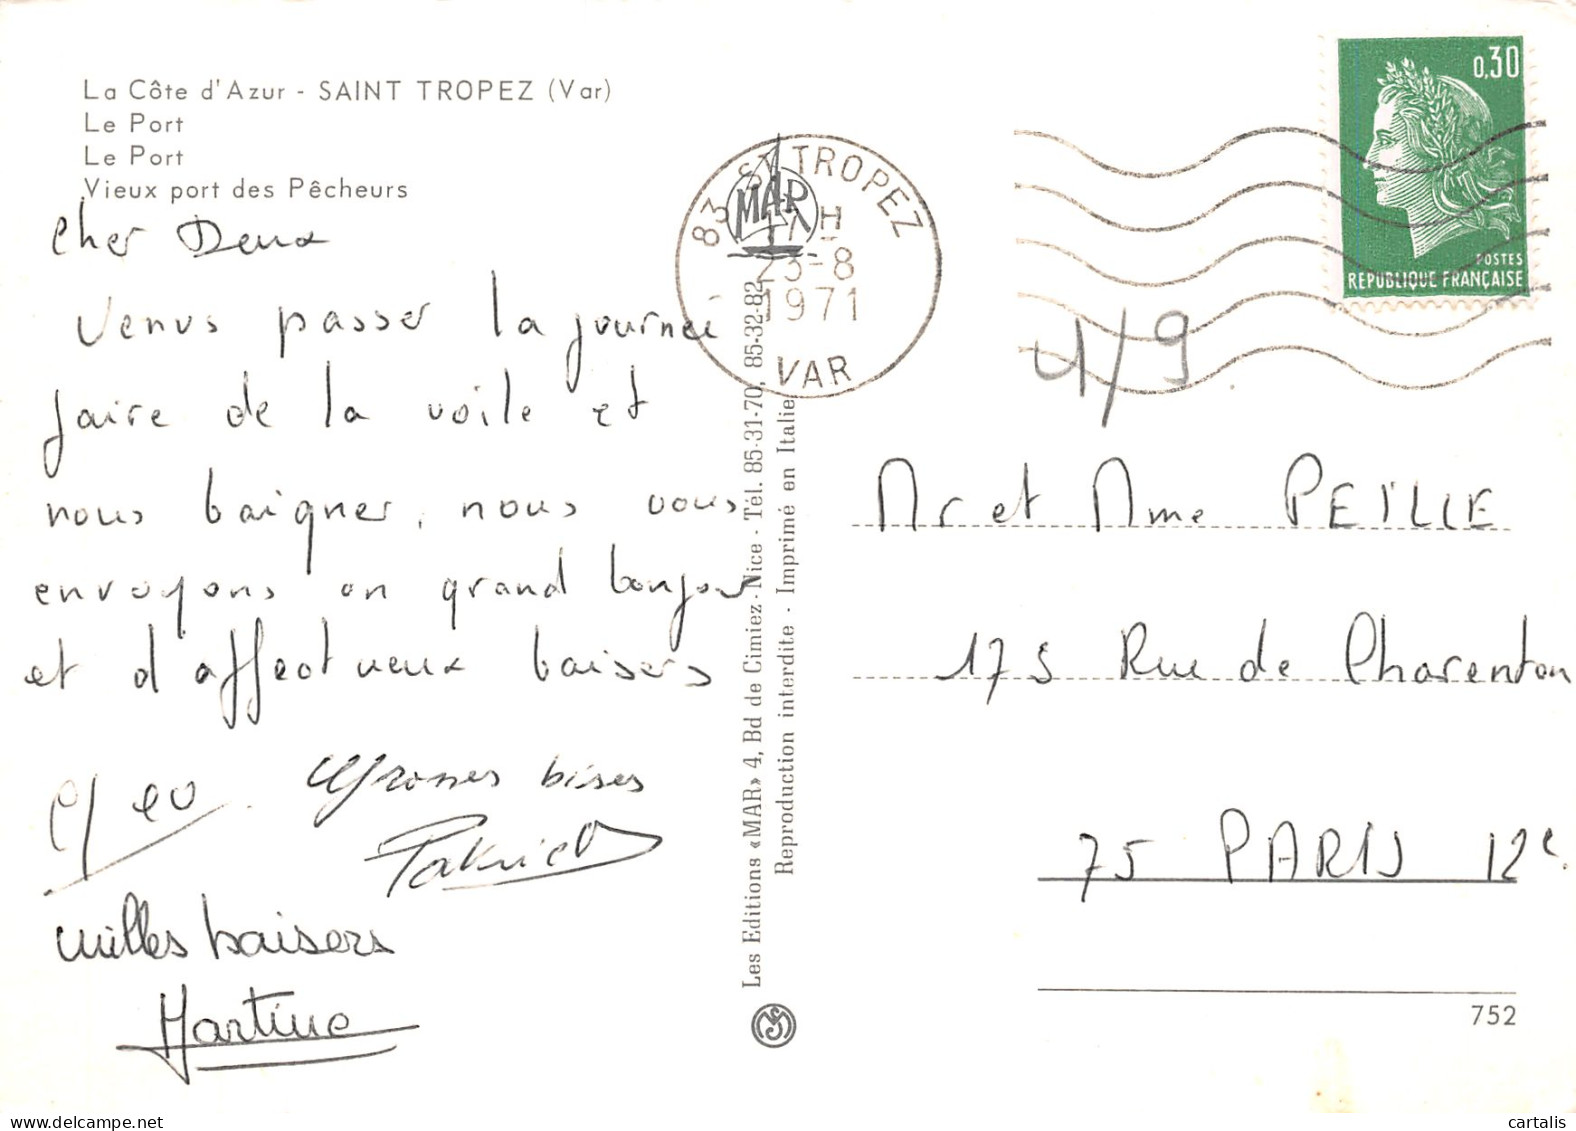 La Côte d'Azur - SAINT TROPEZ (Var)
Le Port
Le Port
Vieux port des Pêcheurs
Cher Deux
Venus passer la journeé
faire de la voile et
nous baigner, nous vous
envoyons un grand bonjour
et d'affectueux baisers
Grosses bises
Patrick
milles baisers
Martine
83 ST TROPEZ
H
23-8
1971
VAR
MAR
Les Editions «MAR» 4, Bd de Cimiez - Nice - Tél. 85-31-70, 85-32-82
Reproduction interdite - Imprimé en Italie
0,30
POSTES
REPUBLIQUE FRANÇAISE
1/9
Mr et Mme PEÏLLE
175 Rue de Charenton
75 PARIS 12e
752
cartalis